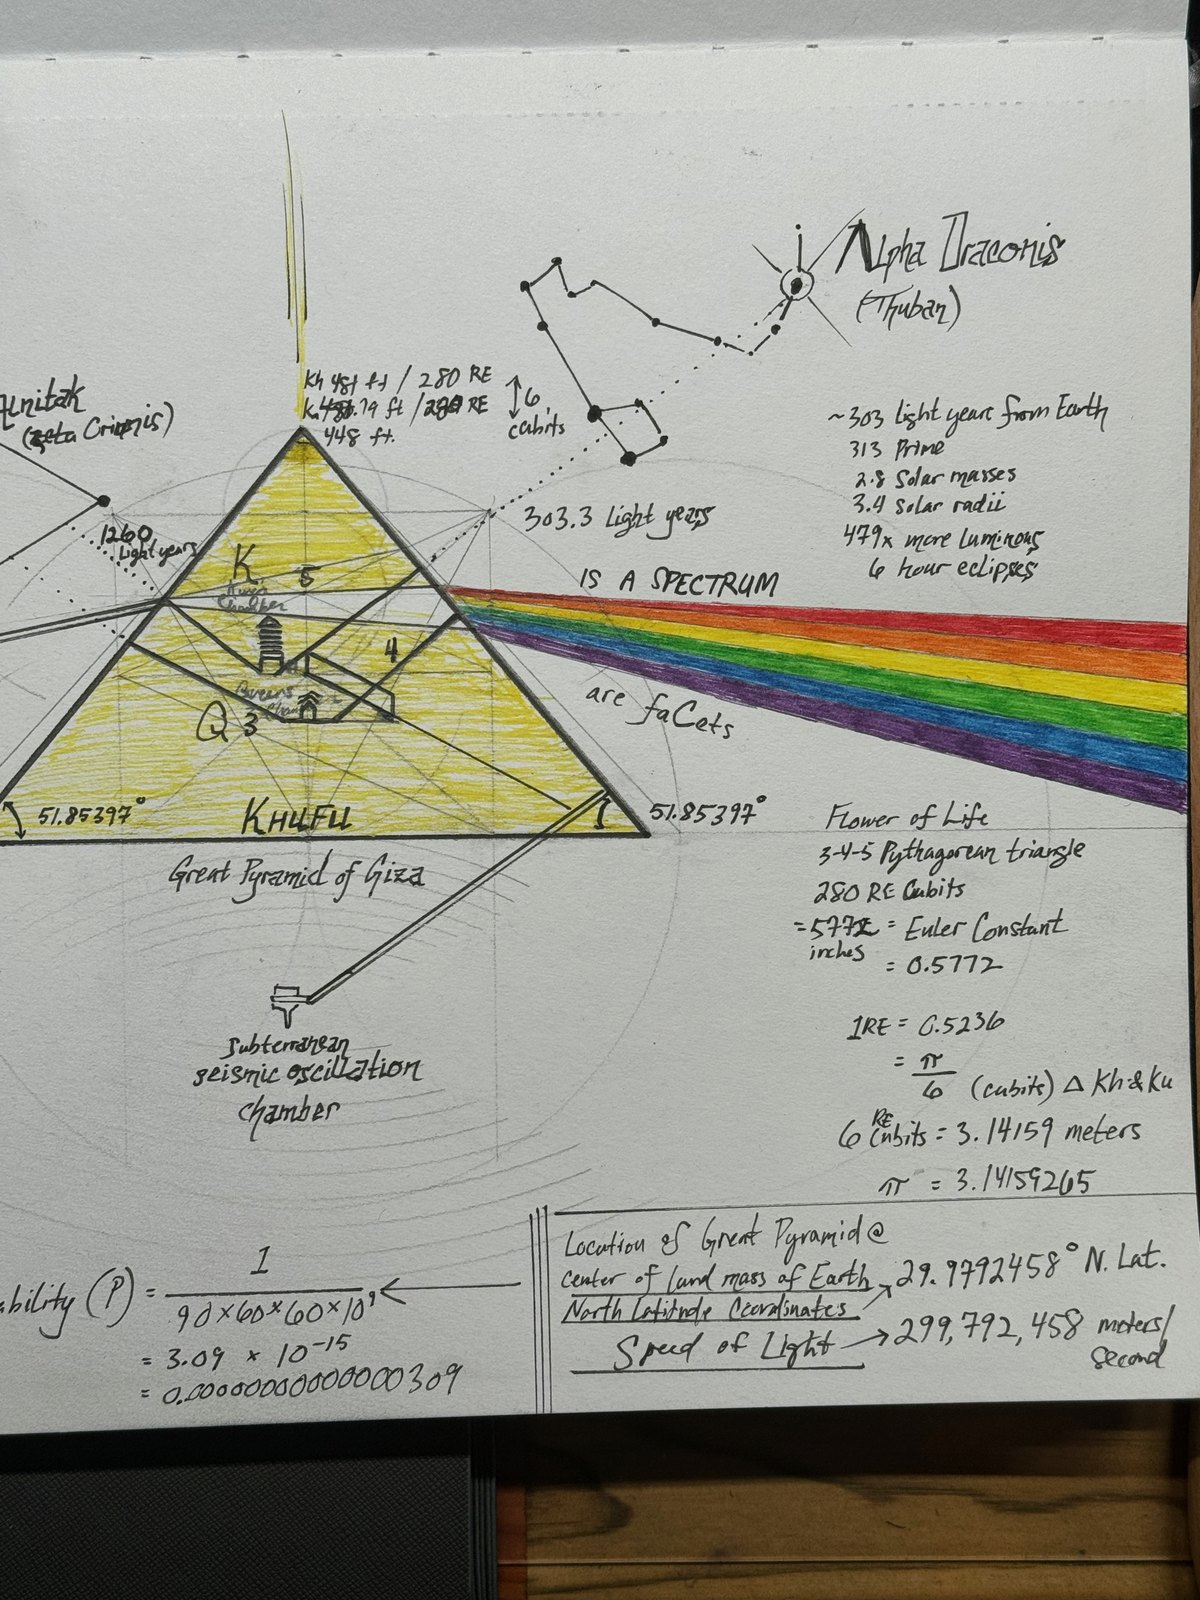 Alpha Draconis
(Thuban)
Kh 481 ft / 280 RE
79 ft / 280 RE
448 ft.
6
cubits
Alnitak
(Zeta Orionis)
~303 Light years from Earth
313 Prime
2.8 Solar masses
3.4 Solar radii
479x more luminous
6 hour eclipses
1260
Light years
303.3 Light years
K
5
Kings
Chamber
IS A SPECTRUM
4
Queens
Q 3
are faCets
51.85397°
KHUFU
51.85397°
Great Pyramid of Giza
Flower of Life
3-4-5 Pythagorean triangle
280 RE Cubits
= 5772 = Euler Constant
inches
= 0.5772
Subterranean
seismic oscillation
chamber
1RE = 0.5236
= π
6 (cubits) Δ Kh & Ku
6 RE Cubits = 3.14159 meters
π = 3.14159265
ability (P) = 1
90×60×60×10⁹
= 3.09 × 10⁻¹⁵
= 0.00000000000000309
Location of Great Pyramid @
center of land mass of Earth
North Latitude Coordinates → 29.9792458° N. Lat.
Speed of Light → 299,792,458 meters/
second